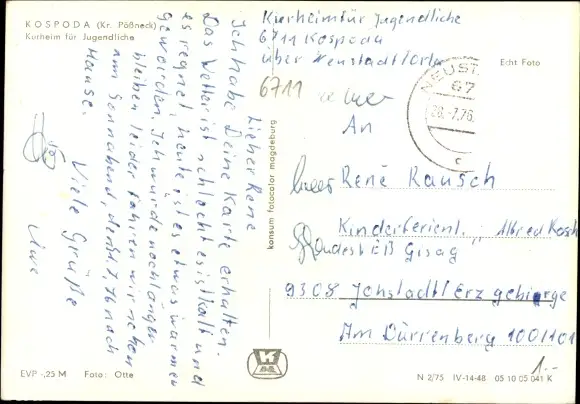 KOSPODA (Kr. Pößneck)
Kurheim für Jugendliche
Lieber Rene
Ich habe Deine Karte erhalten.
Das Wetter ist schlecht es ist kalt und
es regnet, heute ist es etwas wärmer
geworden. Ich würde noch länger
bleiben leider fahren wir schon
am Sonnabend, den 31.7.76 nach
Hause.
Viele Grüße
Uwe
Kurheim für Jugendliche
6711 Kospoda
über Neustadt/Orla
6711
Echt Foto
NEUST
67
28.-7.76
c
An
René Rausch
Kinderferienl. "Alfred Kosch
EB Gisag
9308 Jöhstadt/Erzgebirge
Am Dürrenberg 100/101
konsum fotocolor magdeburg
K
1.-
EVP -,25 M Foto: Otte
N 2/75 IV-14-48 05 10 05 041 K